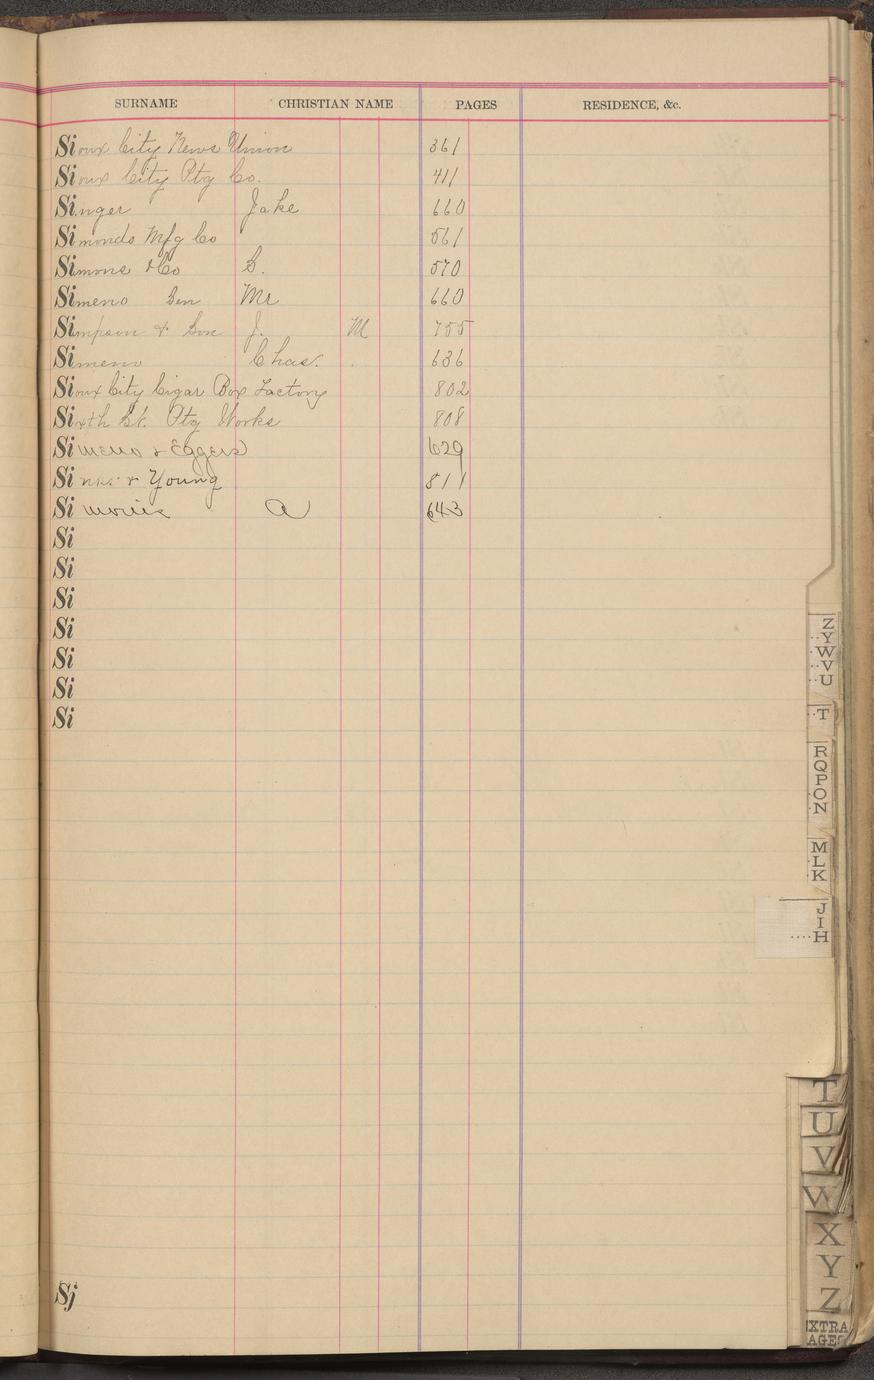 SURNAME CHRISTIAN NAME PAGES RESIDENCE, &c.
Sioux City News Union 361
Sioux City Ptg Co. 411
Singer Jake 660
Simonds Mfg Co 561
Simons & Co S. 570
Simeno Mr 660
Simpson & Son J. M 755
Simeno Chas. 636
Sioux City Cigar Box Factory 802
Sixth St. Ptg Works 808
Simeno & Eggers 629
& Young 811
A 643
Si
Si
Si
Si
Si
Si
Si
Sj
Z
Y
W
V
U
T
R
Q
P
O
N
M
L
K
J
I
H
T
U
V
W
X
Y
Z
XTRA
AGES